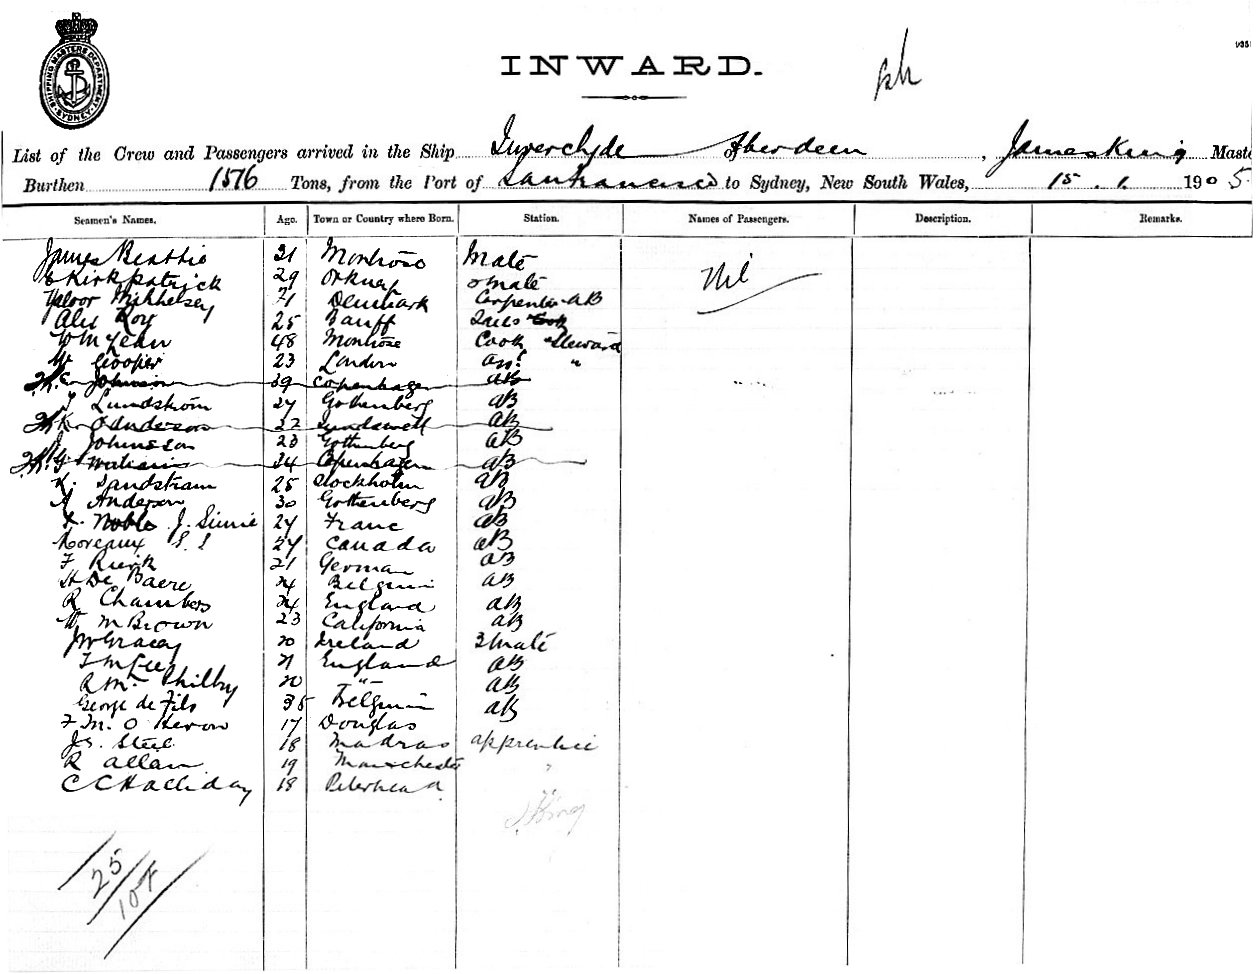 SHIPPING MASTERS DEPARTMENT SYDNEY
INWARD.
List of the Crew and Passengers arrived in the Ship Inverclyde of Aberdeen, James King Maste
Burthen 1576 Tons, from the Port of San Francisco to Sydney, New South Wales, 15 . 1. 1905
Seamen's Names. Age. Town or Country where Born. Station. Names of Passengers. Description. Remarks.
James Beattie 31 Montrose Mate Nil
Kirkpatrick 29 Orkney 2 Mate
Mikkelsen Denmark Carpenter AB
Alex Roy 25 Banff Sails Cook
48 Montrose Cook Steward
W Cooper 23 London "
Johnson 39 Copenhagen AB
Lundstrom 27 Gothenberg AB
Anderson 22 AB
J Johnsson 23 Gothenberg AB
34 Copenhagen AB
K. Sandstram 25 Stockholm AB
A Anderson 30 Gothenberg AB
Noble J. Sinnie 27 Franc AB
Moreaux 27 Canada AB
F 21 German AB
H De Baere 24 Belgium AB
R Chambers 24 England AB
W M Brown 23 California AB
J W Gracey 20 Ireland 3 Mate
F McGee 21 England AB
R Mc Philby 20 " AB
George de Fils 35 Belgium AB
F M. O Heron 17 Douglas
Js. Steel 18 Madras apprentice
R Allan 19 Manchester "
C C Halliday 18 Peterhead "
J King
25
10 F